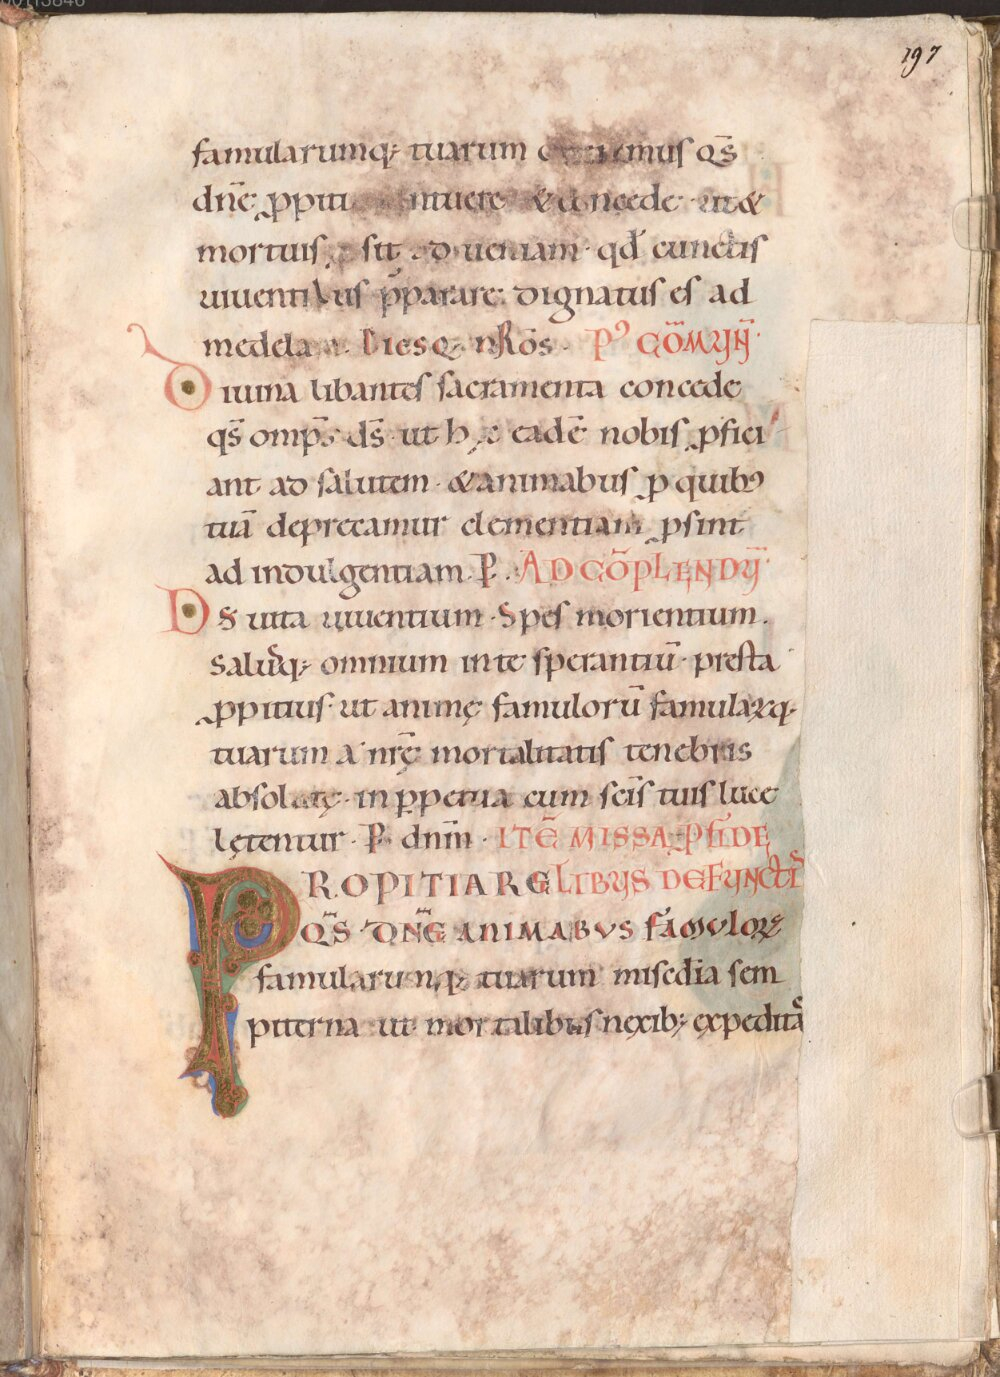 197
famularumq; tuarum offerimus q̄s
dn̄e ꝓpiti intuere & concede · ut &
mortuis sit ad ueniam · qd̄ cunctis
uiuentibus p̄parare dignatus es ad
medelam. Diesq; nr̄os. Pꝰ COM̄VN̄
Diuina libantes sacramenta concede
q̄s omp̄s ds̄ · ut hęc eadē nobis ꝓfici
ant ad salutem · & animabus ꝓ quibꝰ
tuā deprecamur clementiam ꝓsint
ad indulgentiam. P. AD CŌPLENDV̄
Ds̄ uita uiuentium · Spes morientium.
Salusq; omnium in te sperantiū · presta
ꝓpitius · ut animę famulorū famulaꝝq·
tuarum a nr̄ę mortalitatis tenebris
absolutę · in ꝑpetua cum sc̄is tuis luce
lętentur · P. dn̄m · ITĒ MISSA ꝓ FIDE
PROPITIARE LIBVS DEFVNCTIS
Q̄S DN̄E ANIMABVS FAMVLOꝜ
famularumq; tuarum misedia sem
piterna ut mortalibus nexib; expeditas